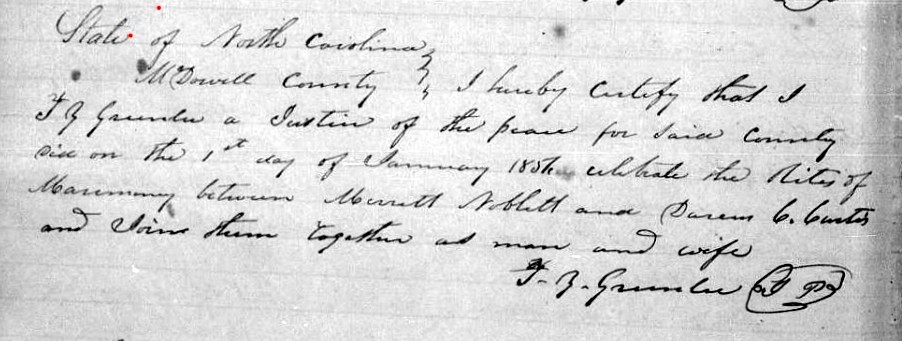 State of North Carolina
McDowell County } I hereby Certify that I
T Y Greenlee a Justice of the peace for Said County
did on the 1st day of January celebrate the Rites of
Maremony between Merrett Noblett and C. Curtis
and Joine them together as man and wife
T. Y. Greenlee J P